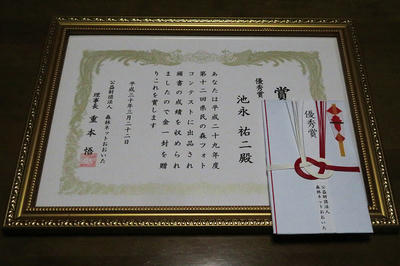 賞
優秀賞
池永 祐二殿
あなたは平成二十九年度
第十二回県民の森フォト
コンテストに出品され
頭書の成績を収められ
ましたので金一封を贈
りこれを賞します
平成三十年三月二十二日
公益財団法人 森林ネットおおいた
理事長 重本 悟
優秀賞
公益財団法人
森林ネットおおいた